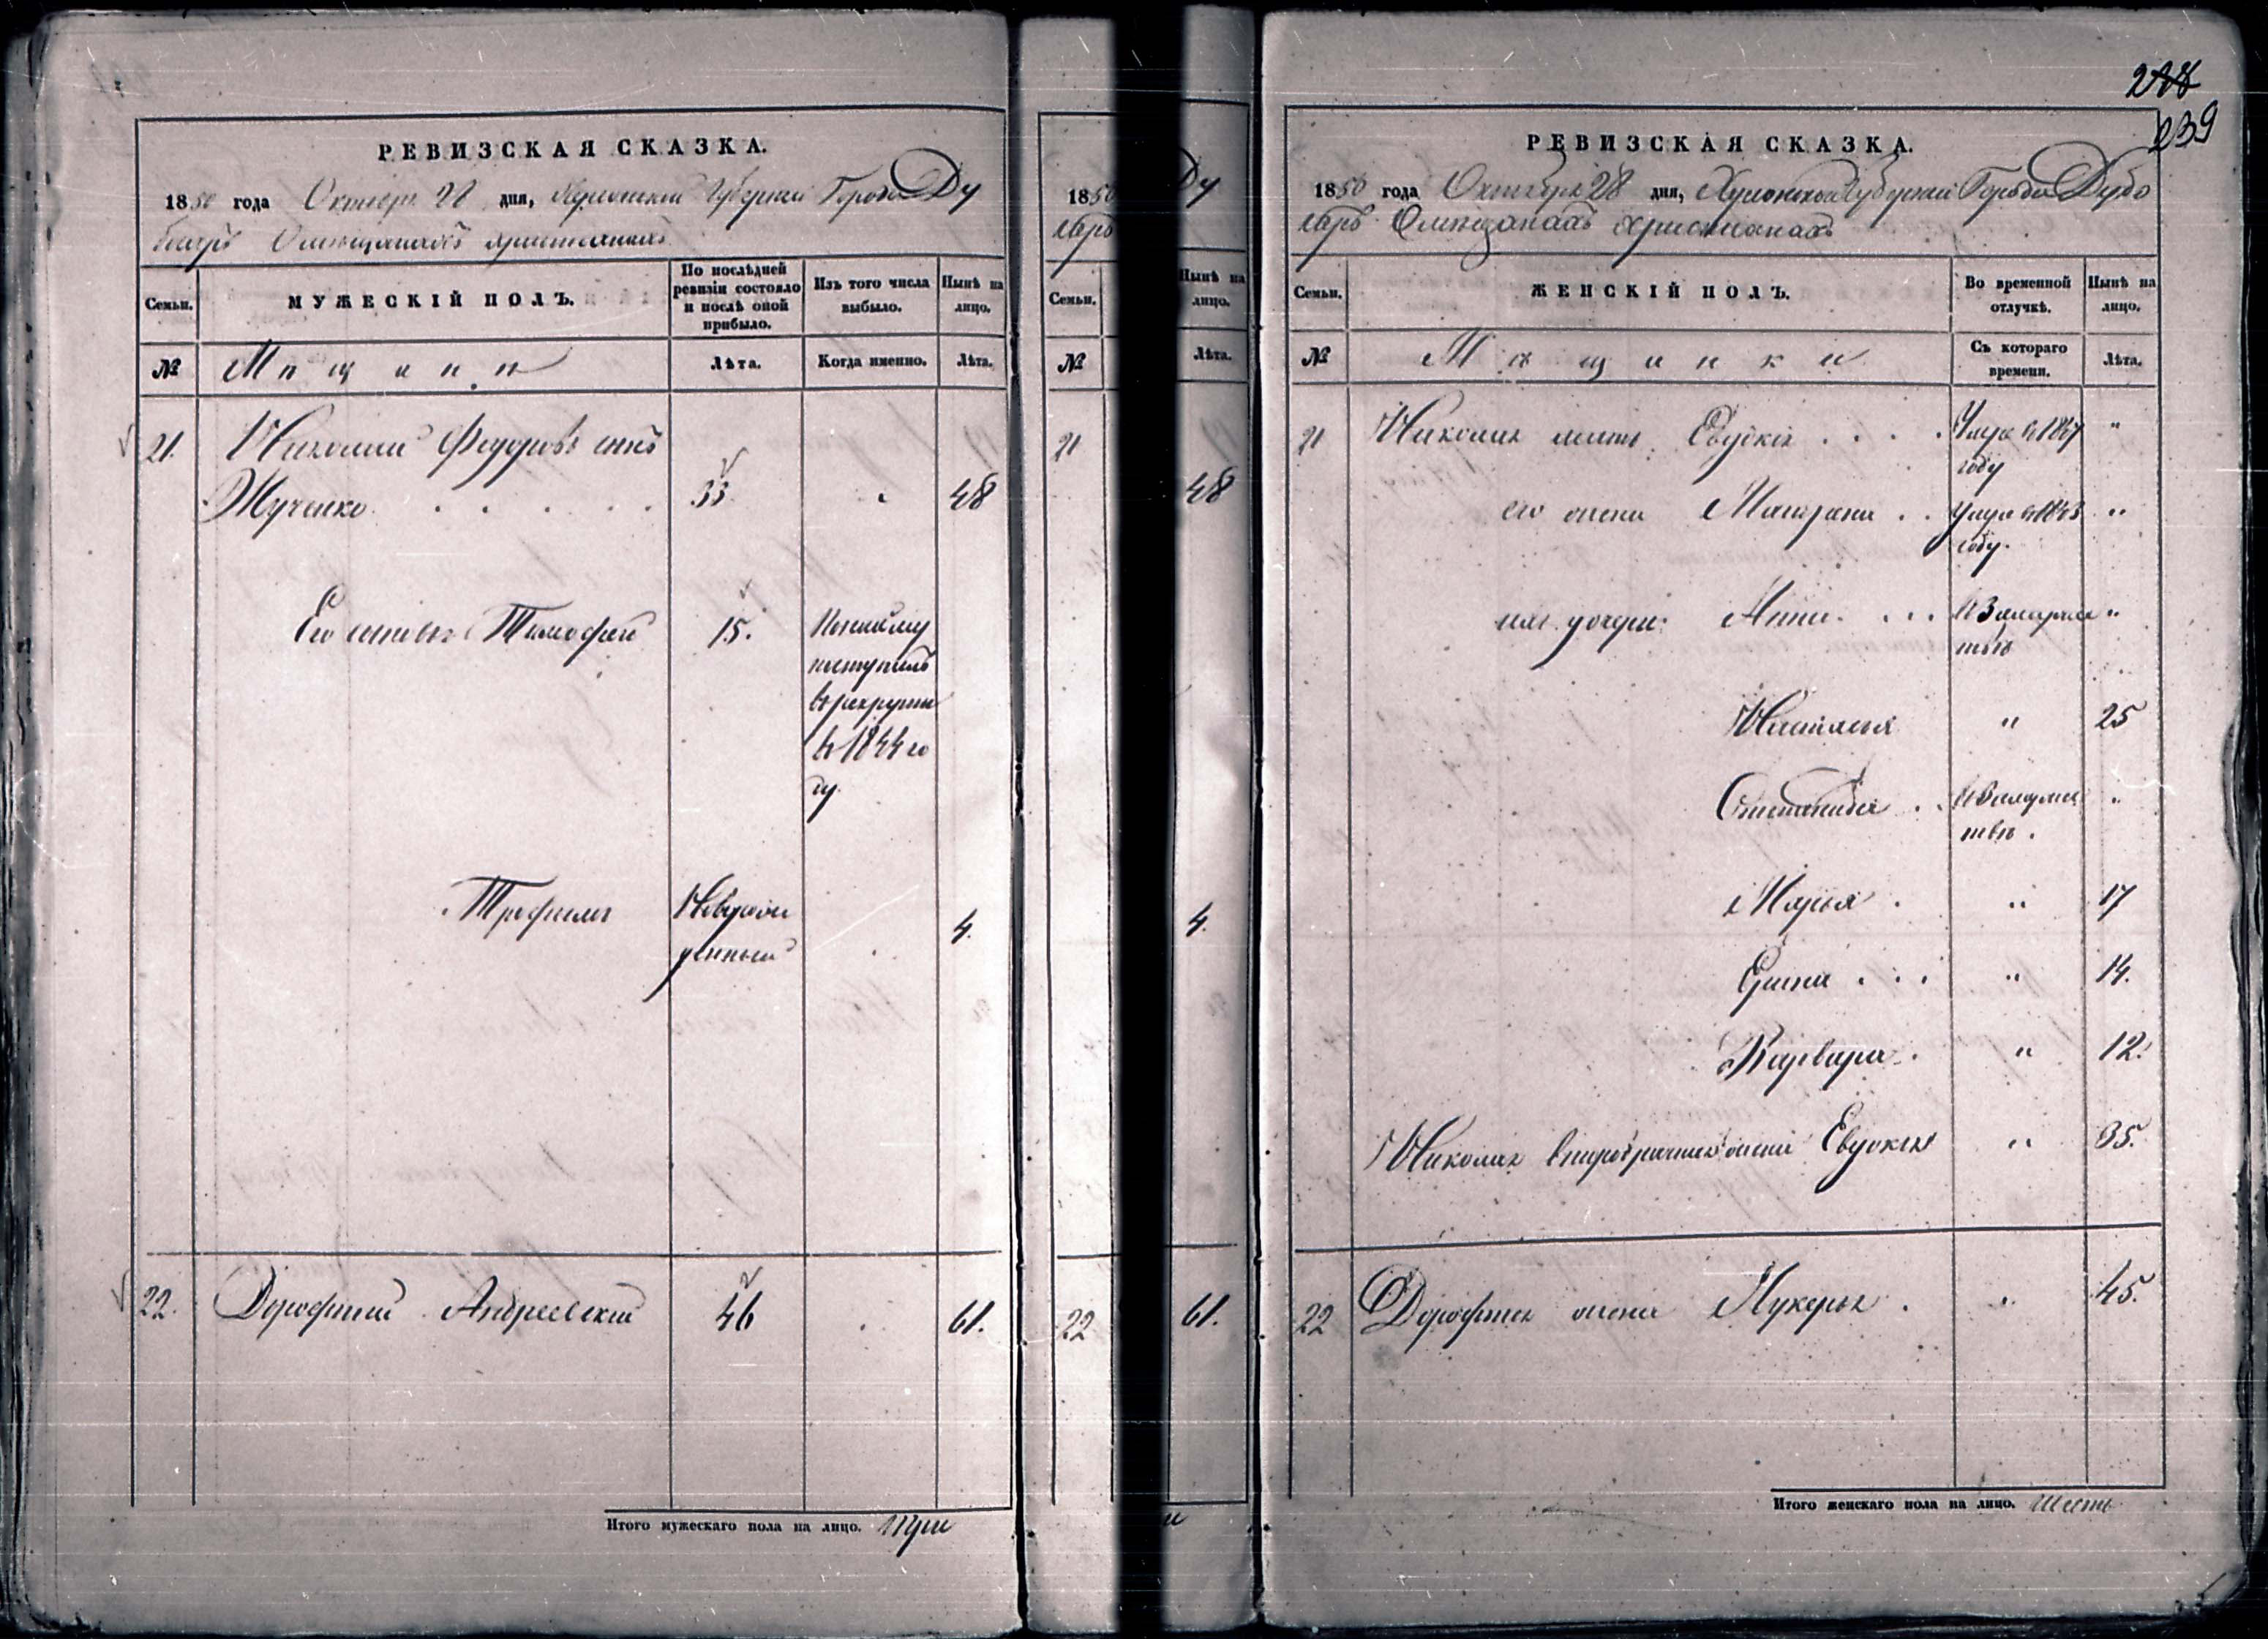 РЕВИЗСКАЯ СКАЗКА.
1850 года Октября 28 дня, Херсонской Губернiи Города Ду
боссаръ Омещанахъ христианахъ
Семьи. МУЖЕСКIЙ ПОЛЪ. По послѣдней ревизiи состояло и послѣ оной прибыло. Изъ того числа выбыло. Нынѣ на лицо.
№ Мѣщани Лѣта. Когда именно. Лѣта.
21. Николай Федоровъ сынъ
Жученко 33 " 48
Его сыновья Тимофей 15.
поступилъ
в рекруты
в 1844 го
ду.
Трофимъ Новорож
денный 4.
22. Дорофтей Андреевскiй 46 61.
Итого мужескаго пола на лицо. Три
1850
Ду
саръ
Семьи.
Нынѣ на лицо.
№
Лѣта.
21
48
4.
22
61.
и
238
239
РЕВИЗСКАЯ СКАЗКА.
1850 года Октября 28 дня, Херсонской Губернiи Города Дубо
саръ Омещанахъ христианахъ
Семьи. ЖЕНСКIЙ ПОЛЪ. Во временной отлучкѣ. Нынѣ на лицо.
№ Мѣщанки Съ котораго времени. Лѣта.
21 Николая мать Евдокiя Умре в
году "
его жена Матрена умре в 1843 "
году.
ихъ дочери: Анна В Замуже "
ствѣ
Настасья " 25
Степанида В Замуже "
ствѣ.
Марья " 17
Ирина " 14.
Варвара " 12.
Николая второбрачная жена Евдокiя " 35.
22 Дорофтея жена Лукерья " 45.
Итого женскаго пола на лицо. Шесть